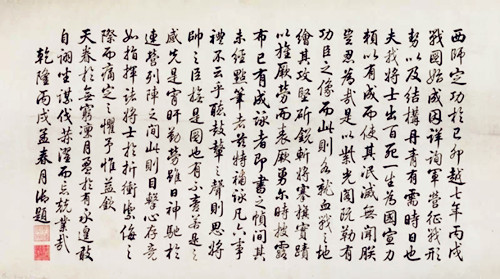 西師定功於己卯越七年丙戌
戰圖始成因詳詢軍營征戰形
勢以及結構丹青有需時日也
夫我將士出百死一生為國宣力
賴以有成而使其泯滅無聞朕
豈忍為哉是以紫光閣既勒有
功臣之像而此則各就血戰之地
繪其攻堅斫銳斬將搴旗實蹟
以旌厥勞而表厥勇爾時披露
布已有成詠者即書之幀間其
未經點筆者茲特補詠凡六事
禮不云乎聽鼓鼙之聲則思將
帥之臣於是圖也有不啻若是之
感先是宵旰勤勞雖日神馳於
連營列陣之間此則目擊心存竟
如指揮諸將士於折衝禦侮之
際而痛定之懼予惟益欽
天眷於無窮凜月盈於有永遑敢
自詡坐謀伐荒而忘兢業哉
乾隆丙戌孟春月御題